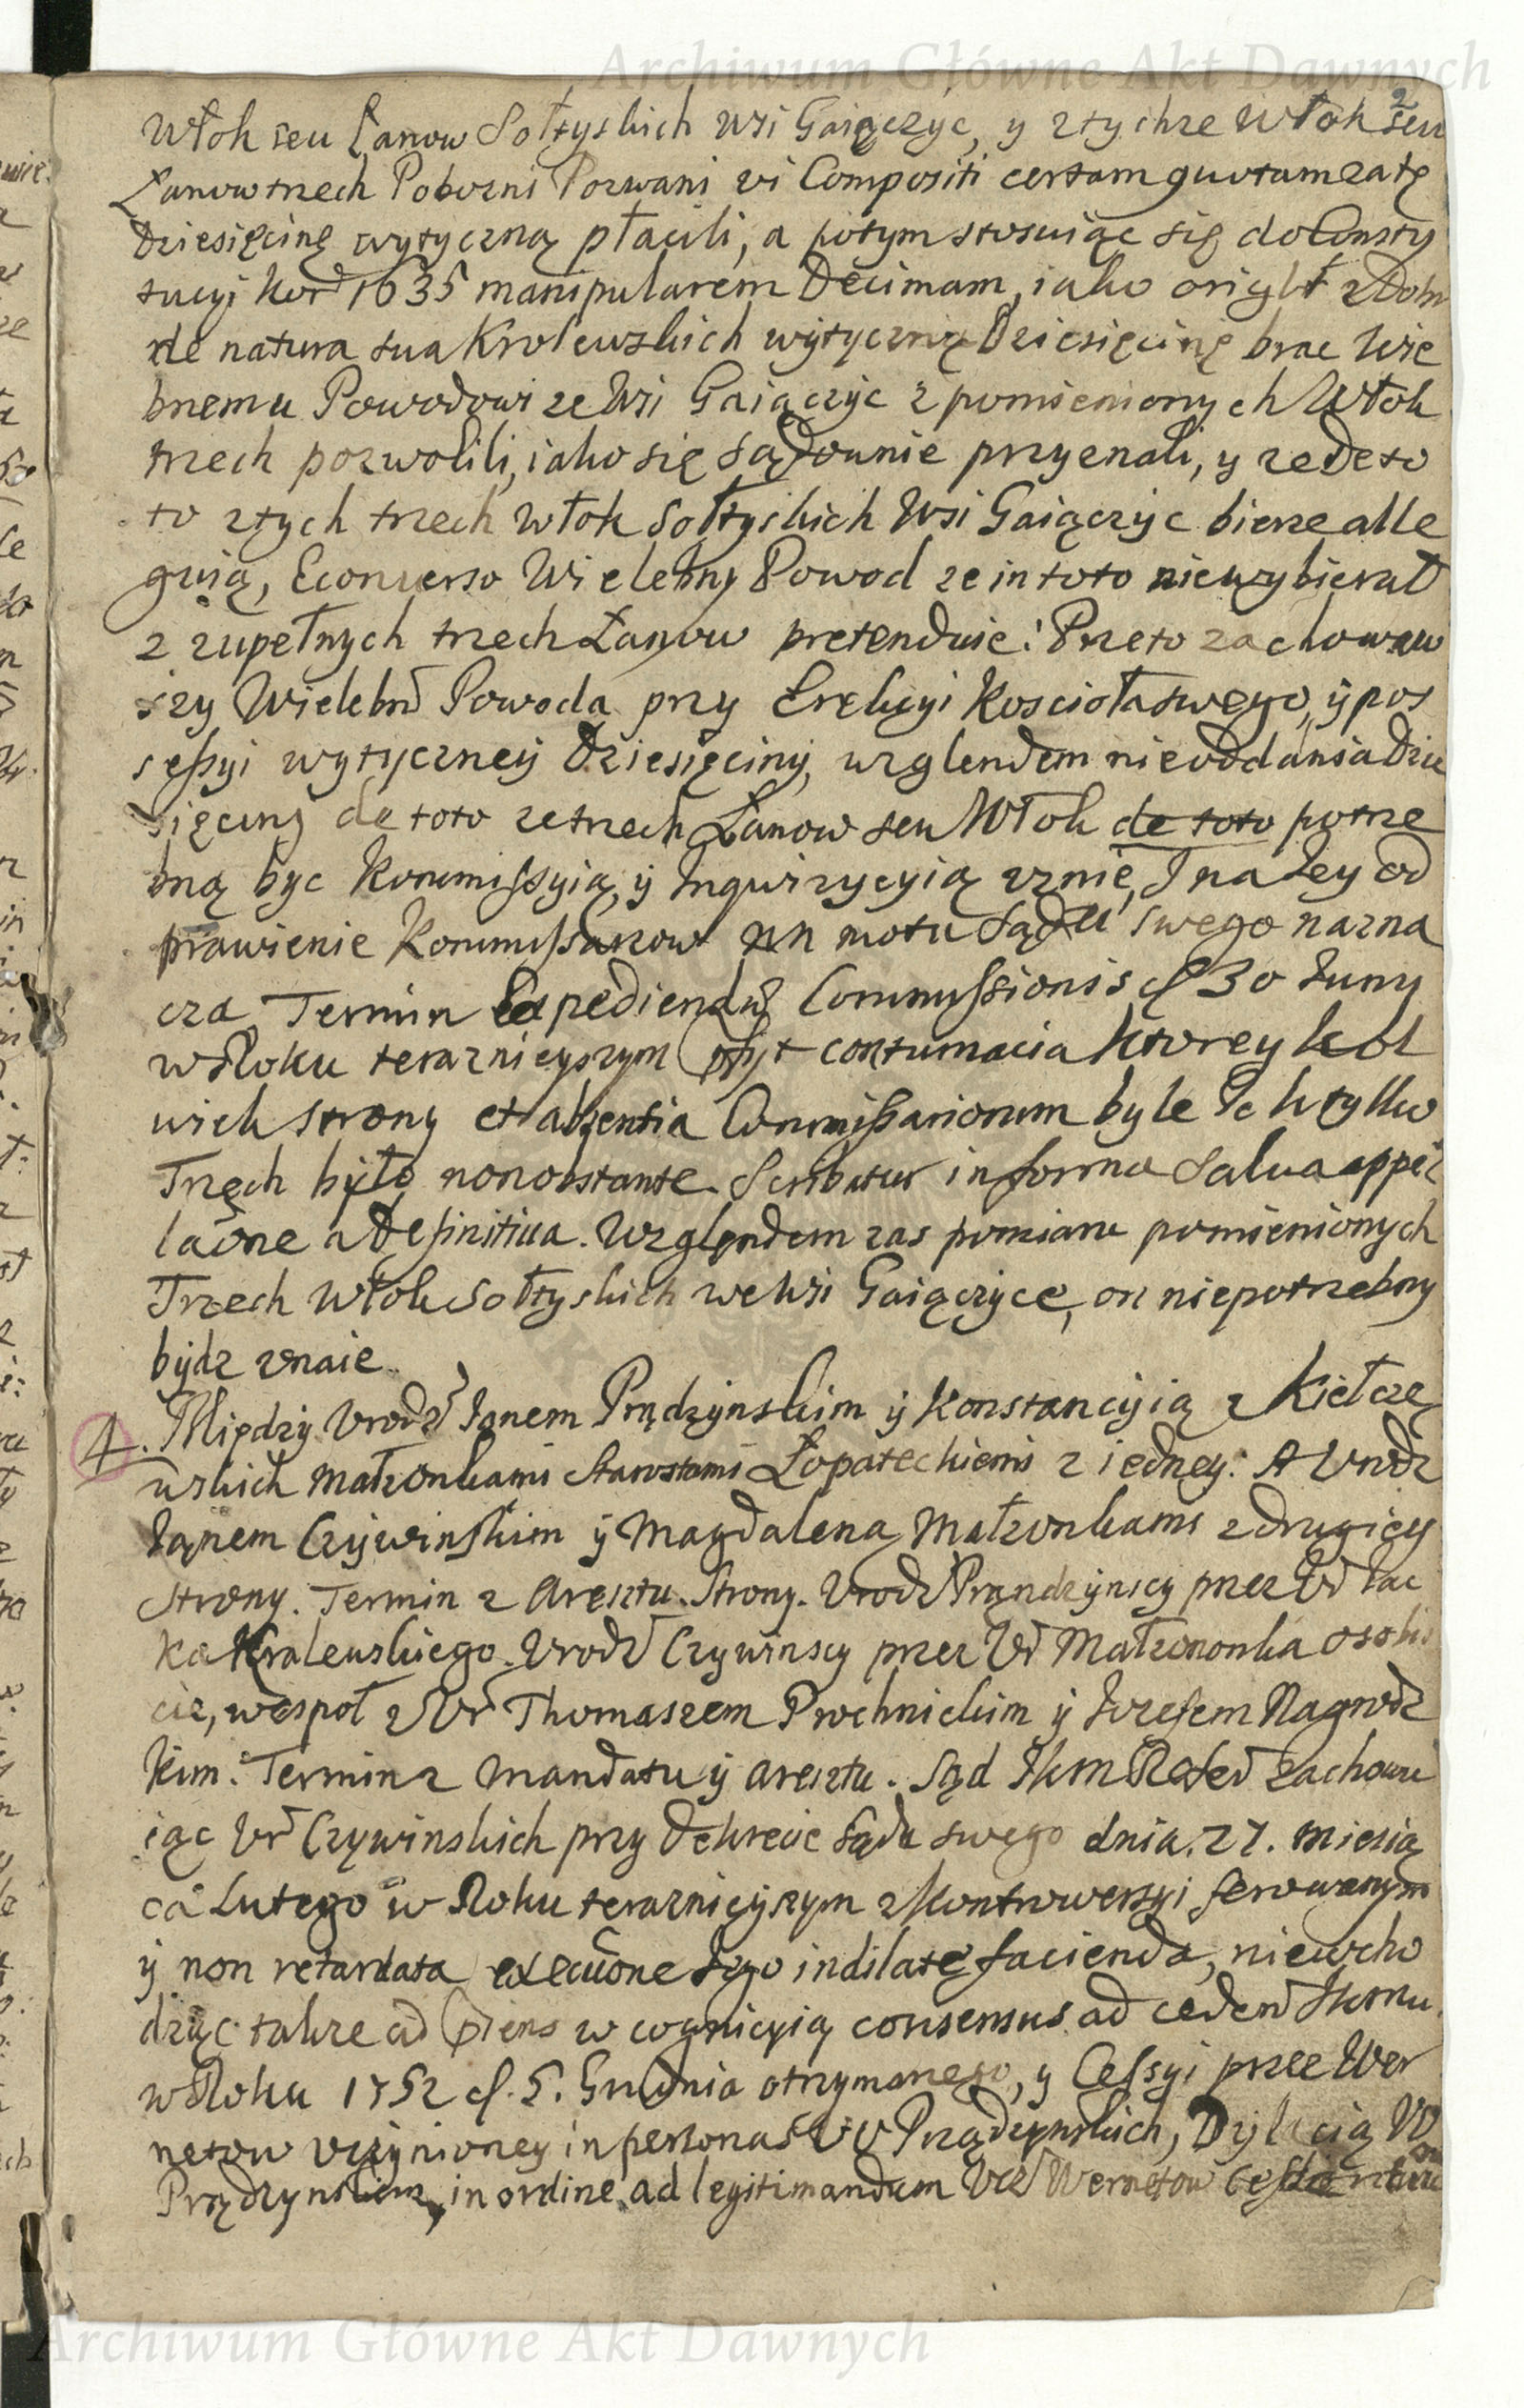 Archiwum Główne Akt Dawnych
2
Włok seu Łanow Sołtyskich wsi Gaięczyc, y z tychze Włok seu
Łanow trzech Poborni Pozwani vi Compositi certam quotam za tę
Dziesięcinę wytyczną płacili, a potym stosuiąc się do Consty
tucyi Kor̃ 1635 manipularem Decimam, iako origłt z Dobr
de natura sua Krolewskich wytyczną Dziesięcinę brac Wie
bnemu Powodowi ze Wsi Gaiączyc z pomienionych Włok
trzech pozwolili, iako się Sądownie przyznali, y ze de to
to z tych trzech Włok Sołtyskich Wsi Gaiączyc bierze alle
guią, Econverso Wielebny Powod ze in toto nie wybierał
z zupełnych trzech Łanow pretenduie: Przeto zachowaw
szy Wielebn̄ Powoda przy Erekcyi Koscioła swego, y pos
sessyi wytyczney Dziesięciny, wzglendem nieoddania Dzie
sięciny de toto ze trzech Łanow seu Włok de toto potrze
bną byc Kommissyią, y Inqwizycyią uznie, J na Jey od
prawienie Kommissarzow ex n motu Sądu swego nazna
cza Termin Expediendæ Commissionis d 30 Juny
w Roku teraznieyszym contumacia ktorey kol
wiek strony et absentia Commissariorum byle Jch tylko
Trzech było nonobstante. Scribatur in forma Salva appel
laõne a Definitiva. Wzglendem zas pomiaru pomienionych
Trzech Włok Sołtyskich we Wsi Gaiączyce, on niepotrzebny
bydz uznaie.
4. Między Urodz̃ Janem Prądzynskim y Konstancyią z Kiełcze
wskich Małzonkami Starostami Łopateckiemi z iedney: A Urodz
Janem Czywinskim y Magdaleną Małzonkami z drugiey
strony. Termin z Aresztu. Strony. Urodz̃ Prąndzynscy przez Ur̃ Jac
ka Kralewskiego. Urodz̃ Czywinscy przez Ur̃ Małzononka osobis
cie, wespoł z Ur̃ Thomaszem Prochnickim y Jozefem Nagrodz
kim. Termin z Mandatu y Aresztu. Sąd JKM zachowu
iąc Ur̃ Czywinskich przy Dekrecie Sądu swego dnia. 27. miesią
ca Lutego w Roku terazniejszym z Kontrowersyi ferowanym
y non retardata execuõne Jego indilatę facienda, niewcho
dząc takze ad p̃sens w cognicyią consensus ad cedend̄ JKMci
w Roku 1752 d. 5. Grudnia otrzymanego, y Cessyi przez Wer
netow uczynioney in personas UU Prądzynskich, Dylacią W
Prądzynskim, in ordine ad legitimandum Ur̃ Wernetow
Archiwum Główne Akt Dawnych